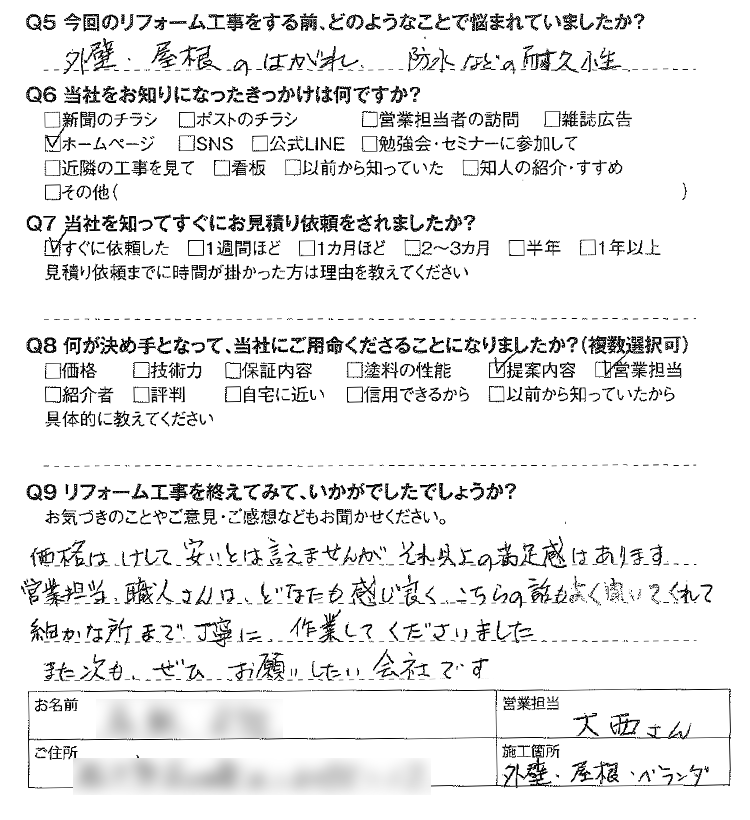 Q5 今回のリフォーム工事をする前、どのようなことで悩まれていましたか?
外壁・屋根のはがれ、防水などの耐久性
Q6 当社をお知りになったきっかけは何ですか?
□新聞のチラシ □ポストのチラシ □営業担当者の訪問 □雑誌広告
☑ホームページ □SNS □公式LINE □勉強会・セミナーに参加して
□近隣の工事を見て □看板 □以前から知っていた □知人の紹介・すすめ
□その他( )
Q7 当社を知ってすぐにお見積り依頼をされましたか?
☑すぐに依頼した □1週間ほど □1カ月ほど □2〜3カ月 □半年 □1年以上
見積り依頼までに時間が掛かった方は理由を教えてください
Q8 何が決め手となって、当社にご用命くださることになりましたか?(複数選択可)
□価格 □技術力 □保証内容 □塗料の性能 ☑提案内容 ☑営業担当
□紹介者 □評判 □自宅に近い □信用できるから □以前から知っていたから
具体的に教えてください
Q9 リフォーム工事を終えてみて、いかがでしたでしょうか?
お気づきのことやご意見・ご感想などもお聞かせください。
価格はけして安いとは言えませんがそれ以上の満足感はあります
営業担当、職人さんは、どなたも感じ良く、こちらの話もよく聞いてくれて
細かな所まで丁寧に、作業してくださいました
また次も、ぜひお願いしたい会社です
お名前
営業担当
大西さん
ご住所
施工箇所
外壁・屋根・ベランダ